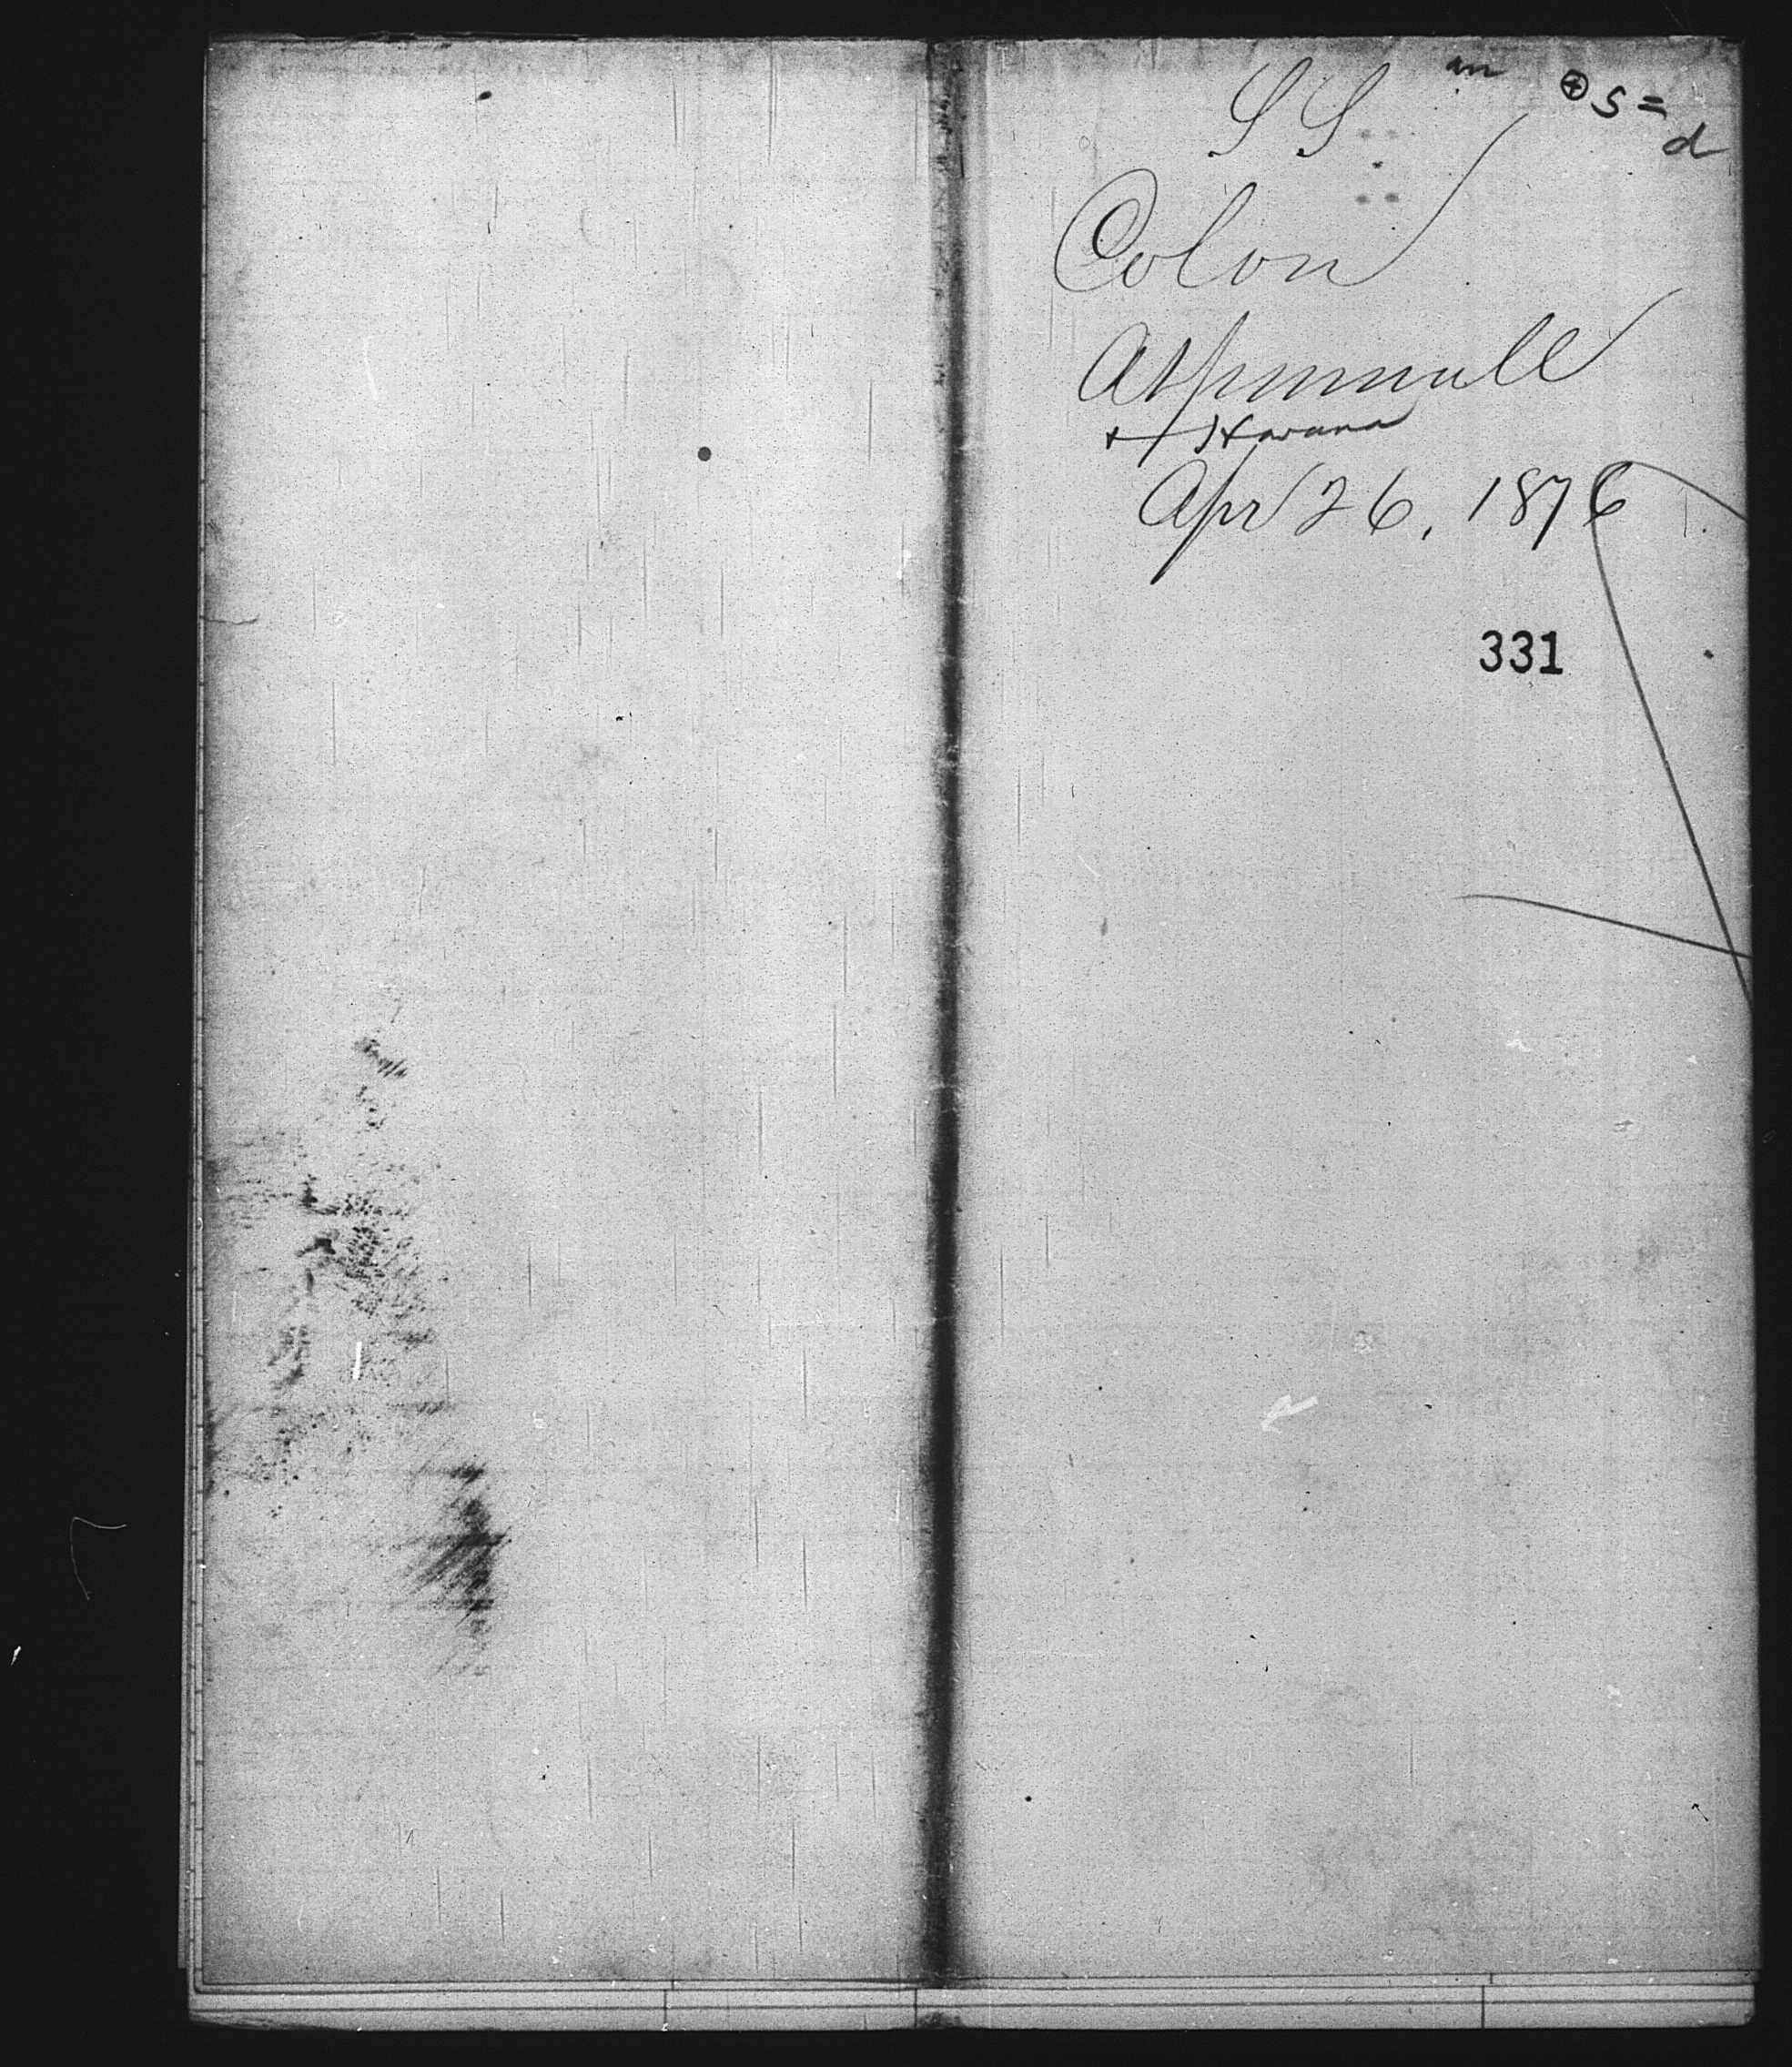 SS an ⊕ S =
d
Colon
Aspinwall
+ Havana
Apr 26, 1876
331